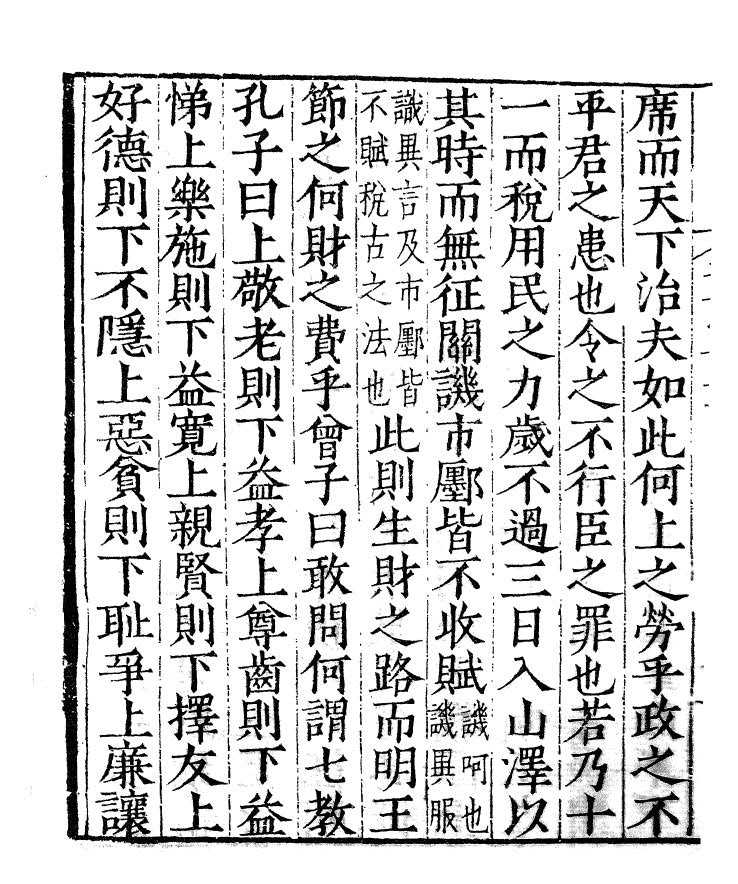 席而天下治夫如此何上之勞乎政之不
平君之患也令之不行臣之罪也若乃十
一而稅用民之力歲不過三日入山澤以
其時而無征關譏市鄽皆不收賦譏呵也譏異服
識異言及市鄽皆不賦稅古之法也此則生財之路而明王
節之何財之費乎曾子曰敢問何謂七教
孔子曰上敬老則下益孝上尊齒則下益
悌上樂施則下益寬上親賢則下擇友上
好德則下不隱上惡貪則下耻爭上廉讓